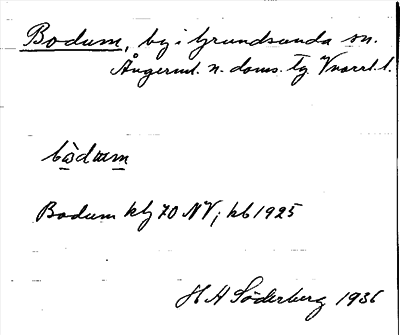 Bodum, by i Grundsunda sn.
Ångerml. n. doms. tg Vnorrl. l.
bòdum
Bodum kbg 70 NV; kb 1925
H A Söderberg 1936